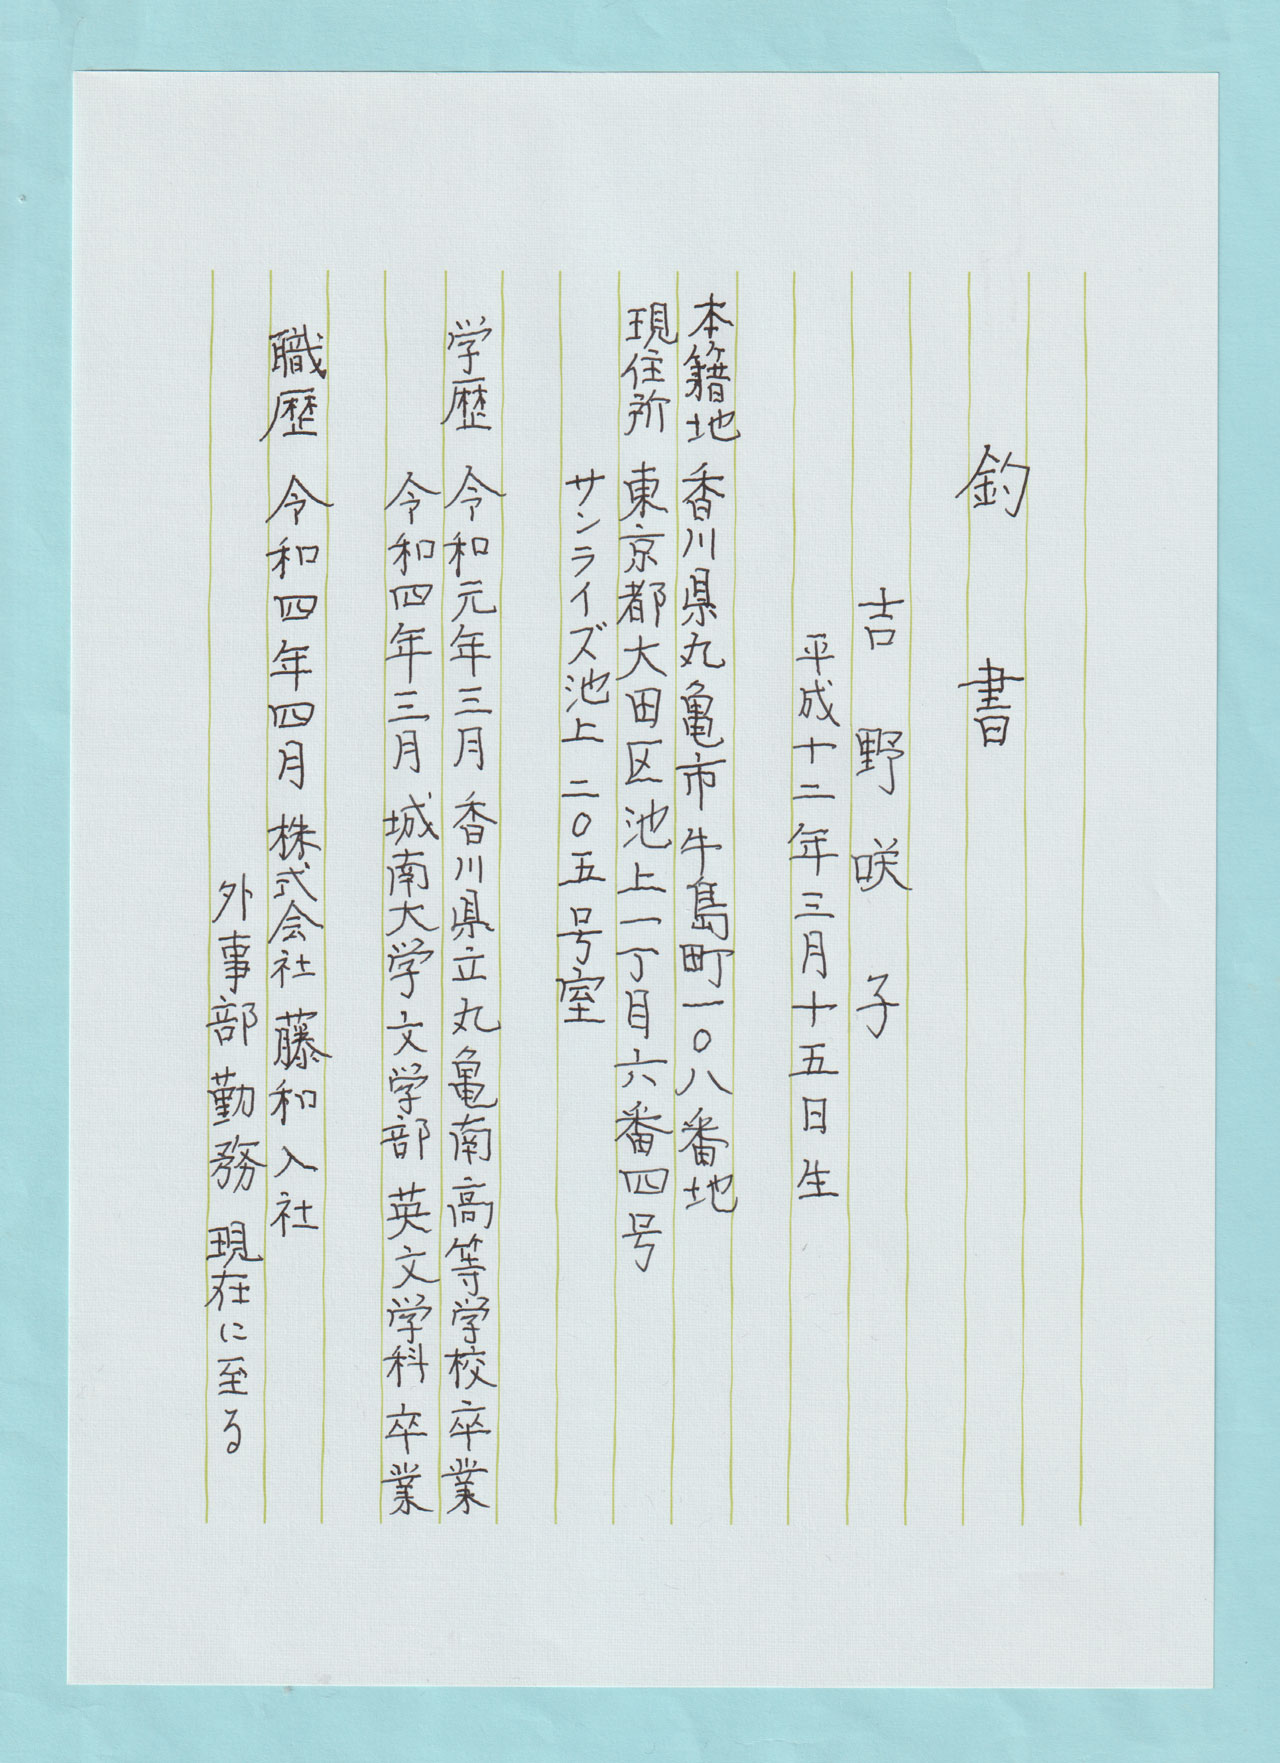 釣書
吉野咲子
平成十二年三月十五日生
本籍地 香川県丸亀市牛島町一〇八番地
現住所 東京都大田区池上一丁目六番四号
サンライズ池上 二〇五号室
学歴 令和元年三月 香川県立丸亀南高等学校卒業
令和四年三月 城南大学文学部 英文学科卒業
職歴 令和四年四月 株式会社 藤和入社
外事部 勤務 現在に至る